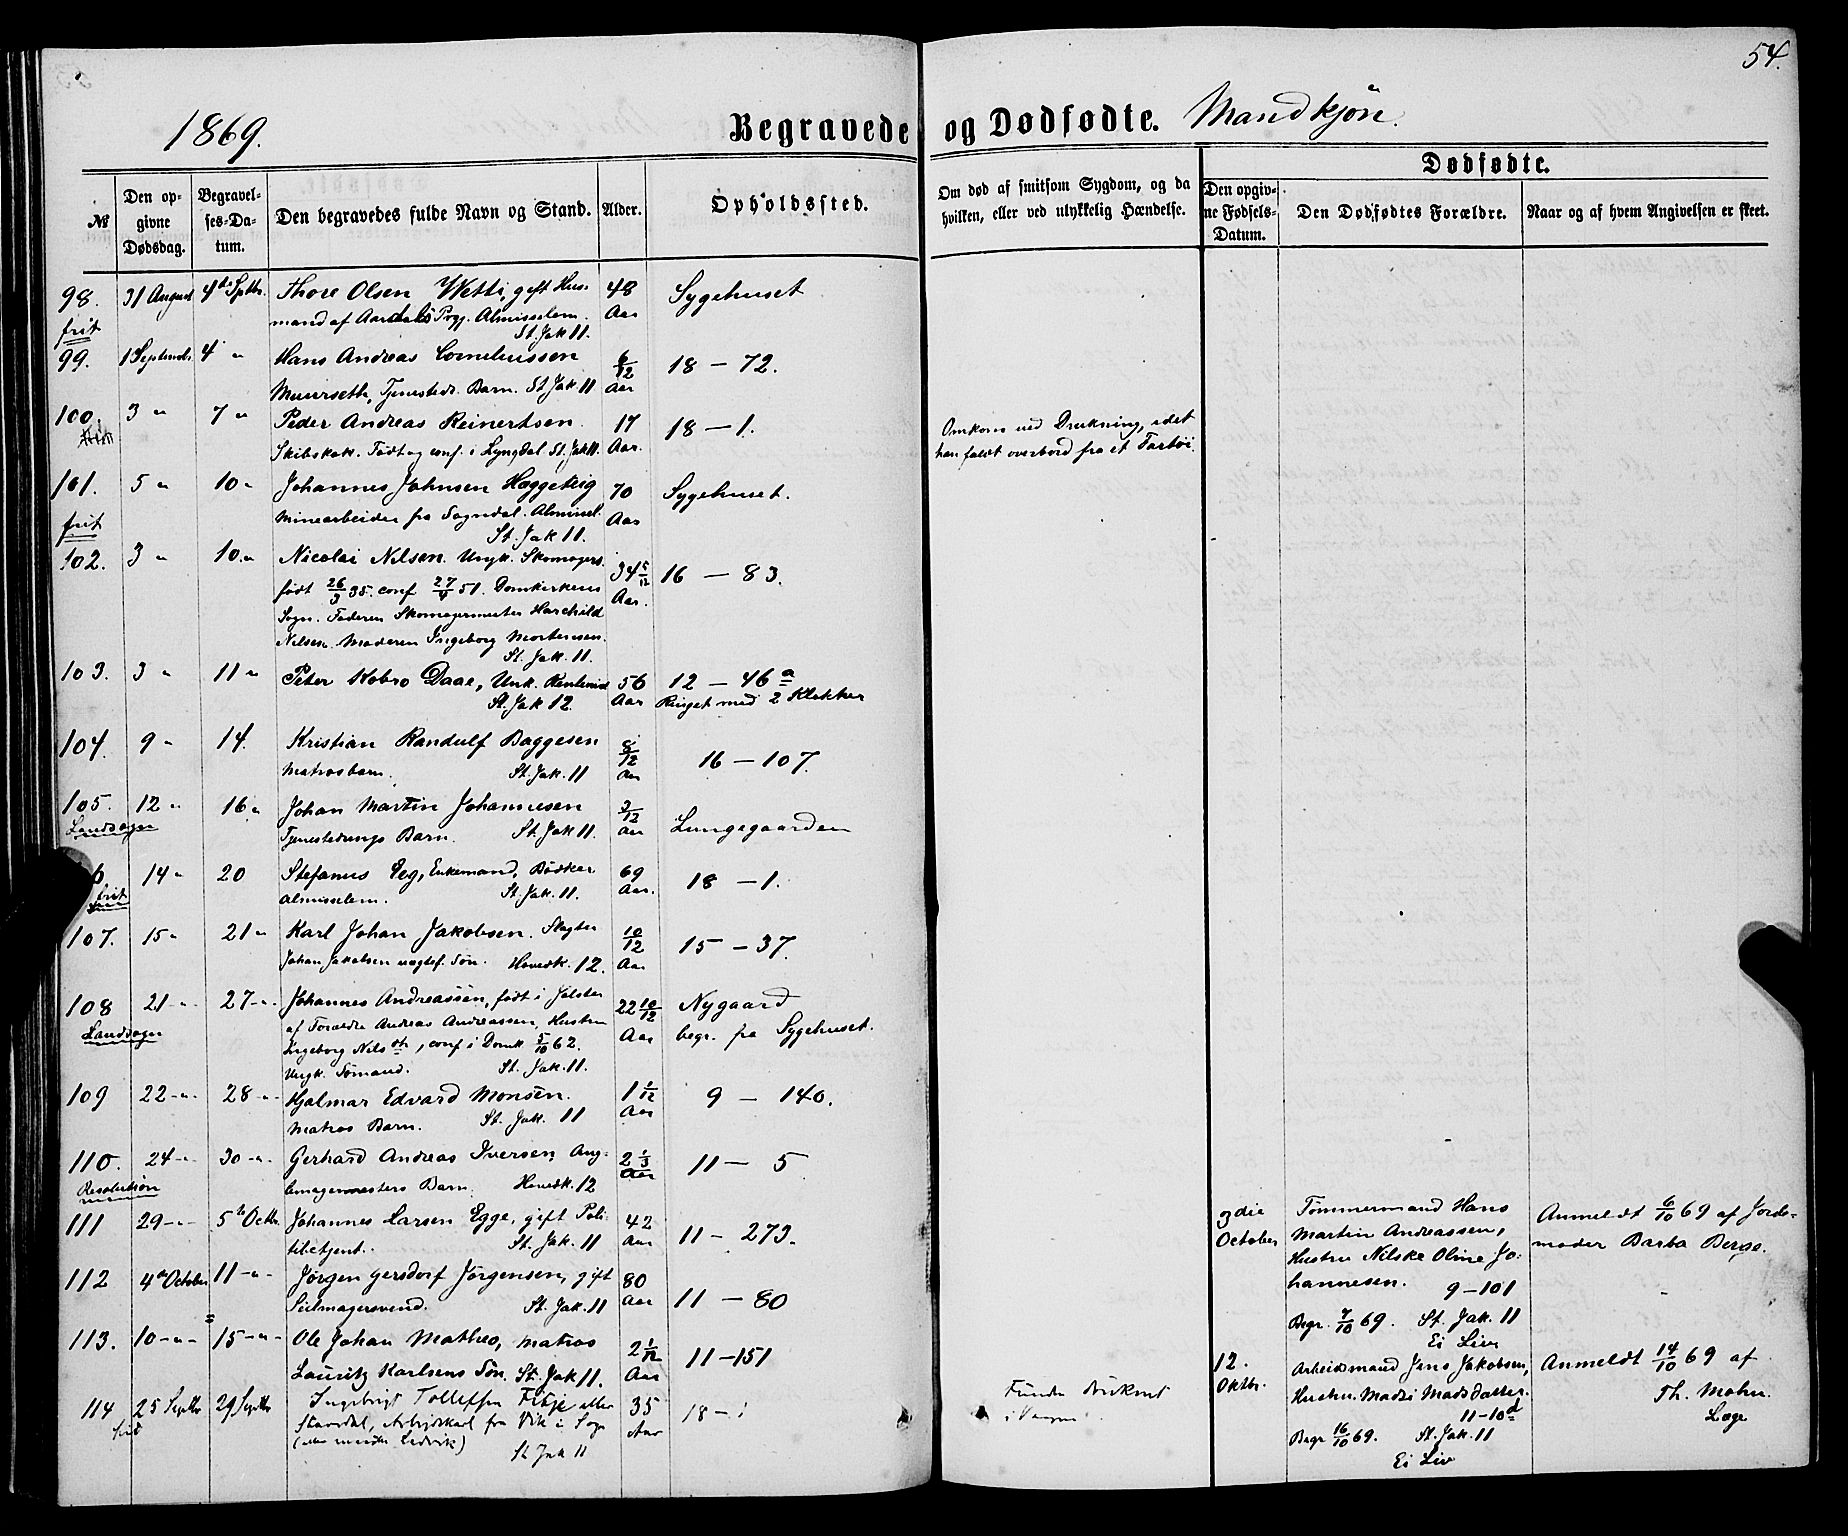 54.
1869.
Begravede og Dødfødte. Mandkjøn.
Dødfødte.
№
Den opgivne Dødsdag.
Begravelses-Datum.
Den begravedes fulde Navn og Stand.
Alder.
Opholdssted.
Om død af smitsom Sygdom, og da hvilken, eller ved ulykkelig Hændelse.
Den opgivne Fødsels-Datum.
Den Dødfødtes Forældre.
Naar og af hvem Angivelsen er skeet.
98. 31 August 4de Septbr. Thore Olsen Wetti, gift Hus- 48 Sygehuset
frit mand af Aardals Prgj. Almisselem. Aar
St. Jak 11.
99. 1 Septembr. 4 " Hans Andreas Corneliussen 6/12 18 – 72.
Muurseth, Tjenestedr. Barn. St. Jak 11 Aar
100. 3 " 7 " Peder Andreas Reinertsen. 17 18 – 1. Omkom ved Drukning, idet
Skibskok. Født og conf. i Lyngdal St. Jak 11. Aar. han faldt overbord fra et Fartøi.
101. 5 " 10 " Johannes Johnsen Haggekeig 70 Sygehuset.
frit Minearbeider fra Sogndal. Almissel. Aar
St. Jak 11.
102. 3 " 10. " Nicolai Nilsen. Ungk. Skomagers. 34 5/12 16 – 83.
født 26/3 35. conf 27/4 51. Domkirkens Aar.
Sogn. Faderen Skomagermester Harchild
Nilsen. Moderen Ingeborg Mortensen.
St. Jak. 11.
103. 3 " 11 " Peter Kobro Daae, Unk. Rentenist 56 12 – 46 a
St. Jak 12. Aar Ringet med 2 Klokker
104. 9 " 14. Kristian Randulf Baggesen 8/12 16 – 107.
Matrosbarn. St. Jak. 11 Aar
105. 12 " 16 " Johan Martin Johannesen 3/12 Lungegaarden
Landsogn Tjenestedrengs Barn. St. Jak 11. Aar
6 14 " 20 Stefanus Eeg, Enkemand, Bødker 69 18 – 1.
frit Almisselem. St. Jak. 11. Aar.
107. 15 " 21 " Karl Johan Jakobsen. Slagter 10/12 15 – 37.
Johan Jakobsen uægtef. Søn. Hovedk. 12. Aar
108 21 – " – 27 – " – Johannes Andreassen, født i Jølster 22 10/12 Nygaard
Landsogn af Forældre Andreas Andreassen, Hustru Aar begr. fra Sygehuset.
Ingeborg Nilsdtr, conf i Domk 5/10 62.
Ungk. Sømand. St. Jak. 11.
109 22 – " – 28 – " – Hjalmar Edvard Monsen. 1 1/12 9 – 140.
Matros Barn. St. Jak. 11 Aar
110. 24 – " – 30 – " – Gerhard Andreas Iversen, 2 1/3 11 – 5
Resolution Barn. Hovedk. 12 Aar
111 29 – " – 5te Octbr. Johannes Larsen Egge, gift Poli- 42 11 – 273.
tibetjent. St. Jak. 11 Aar
112 4de October 11 – " – Jørgen Gersdorf Jørgensen, gift 80 11 – 80
Seilmagersvend. St. Jak. 11 Aar
113. 10 – " – 15 – " – Ole Johan Matheo, Matros 2 1/12 11 – 151
Lauritz Karlsens Søn. St. Jak 11. Aar
114 25 Septbr 29 Septbr Ingebrigt Tollefsen eller 35 18 – 1 Funden druknet
frit Arbeidskarl fra Vik i Sogn Aar i Vaagen.
St Jak 11
October
Tømmermand Hans
Martin Andreassen,
Hustru Nilske Oline Jo-
hannesen. 9 – 101
Begr. 7/10 69. St. Jak. 11
Ei Liv
Anmeldt 6/10 69 af Jorde-
moder Barba Berge.
12.
Oktbr.
Arbeidsmand Jens Jakobsen,
Hustru. Madsi Madsdatter.
11 – 10 d
Begr 16/10 69. St. Jak. 11
Ei Liv
Anmeldt 14/10 69 af
Th. Mohn.
Læge